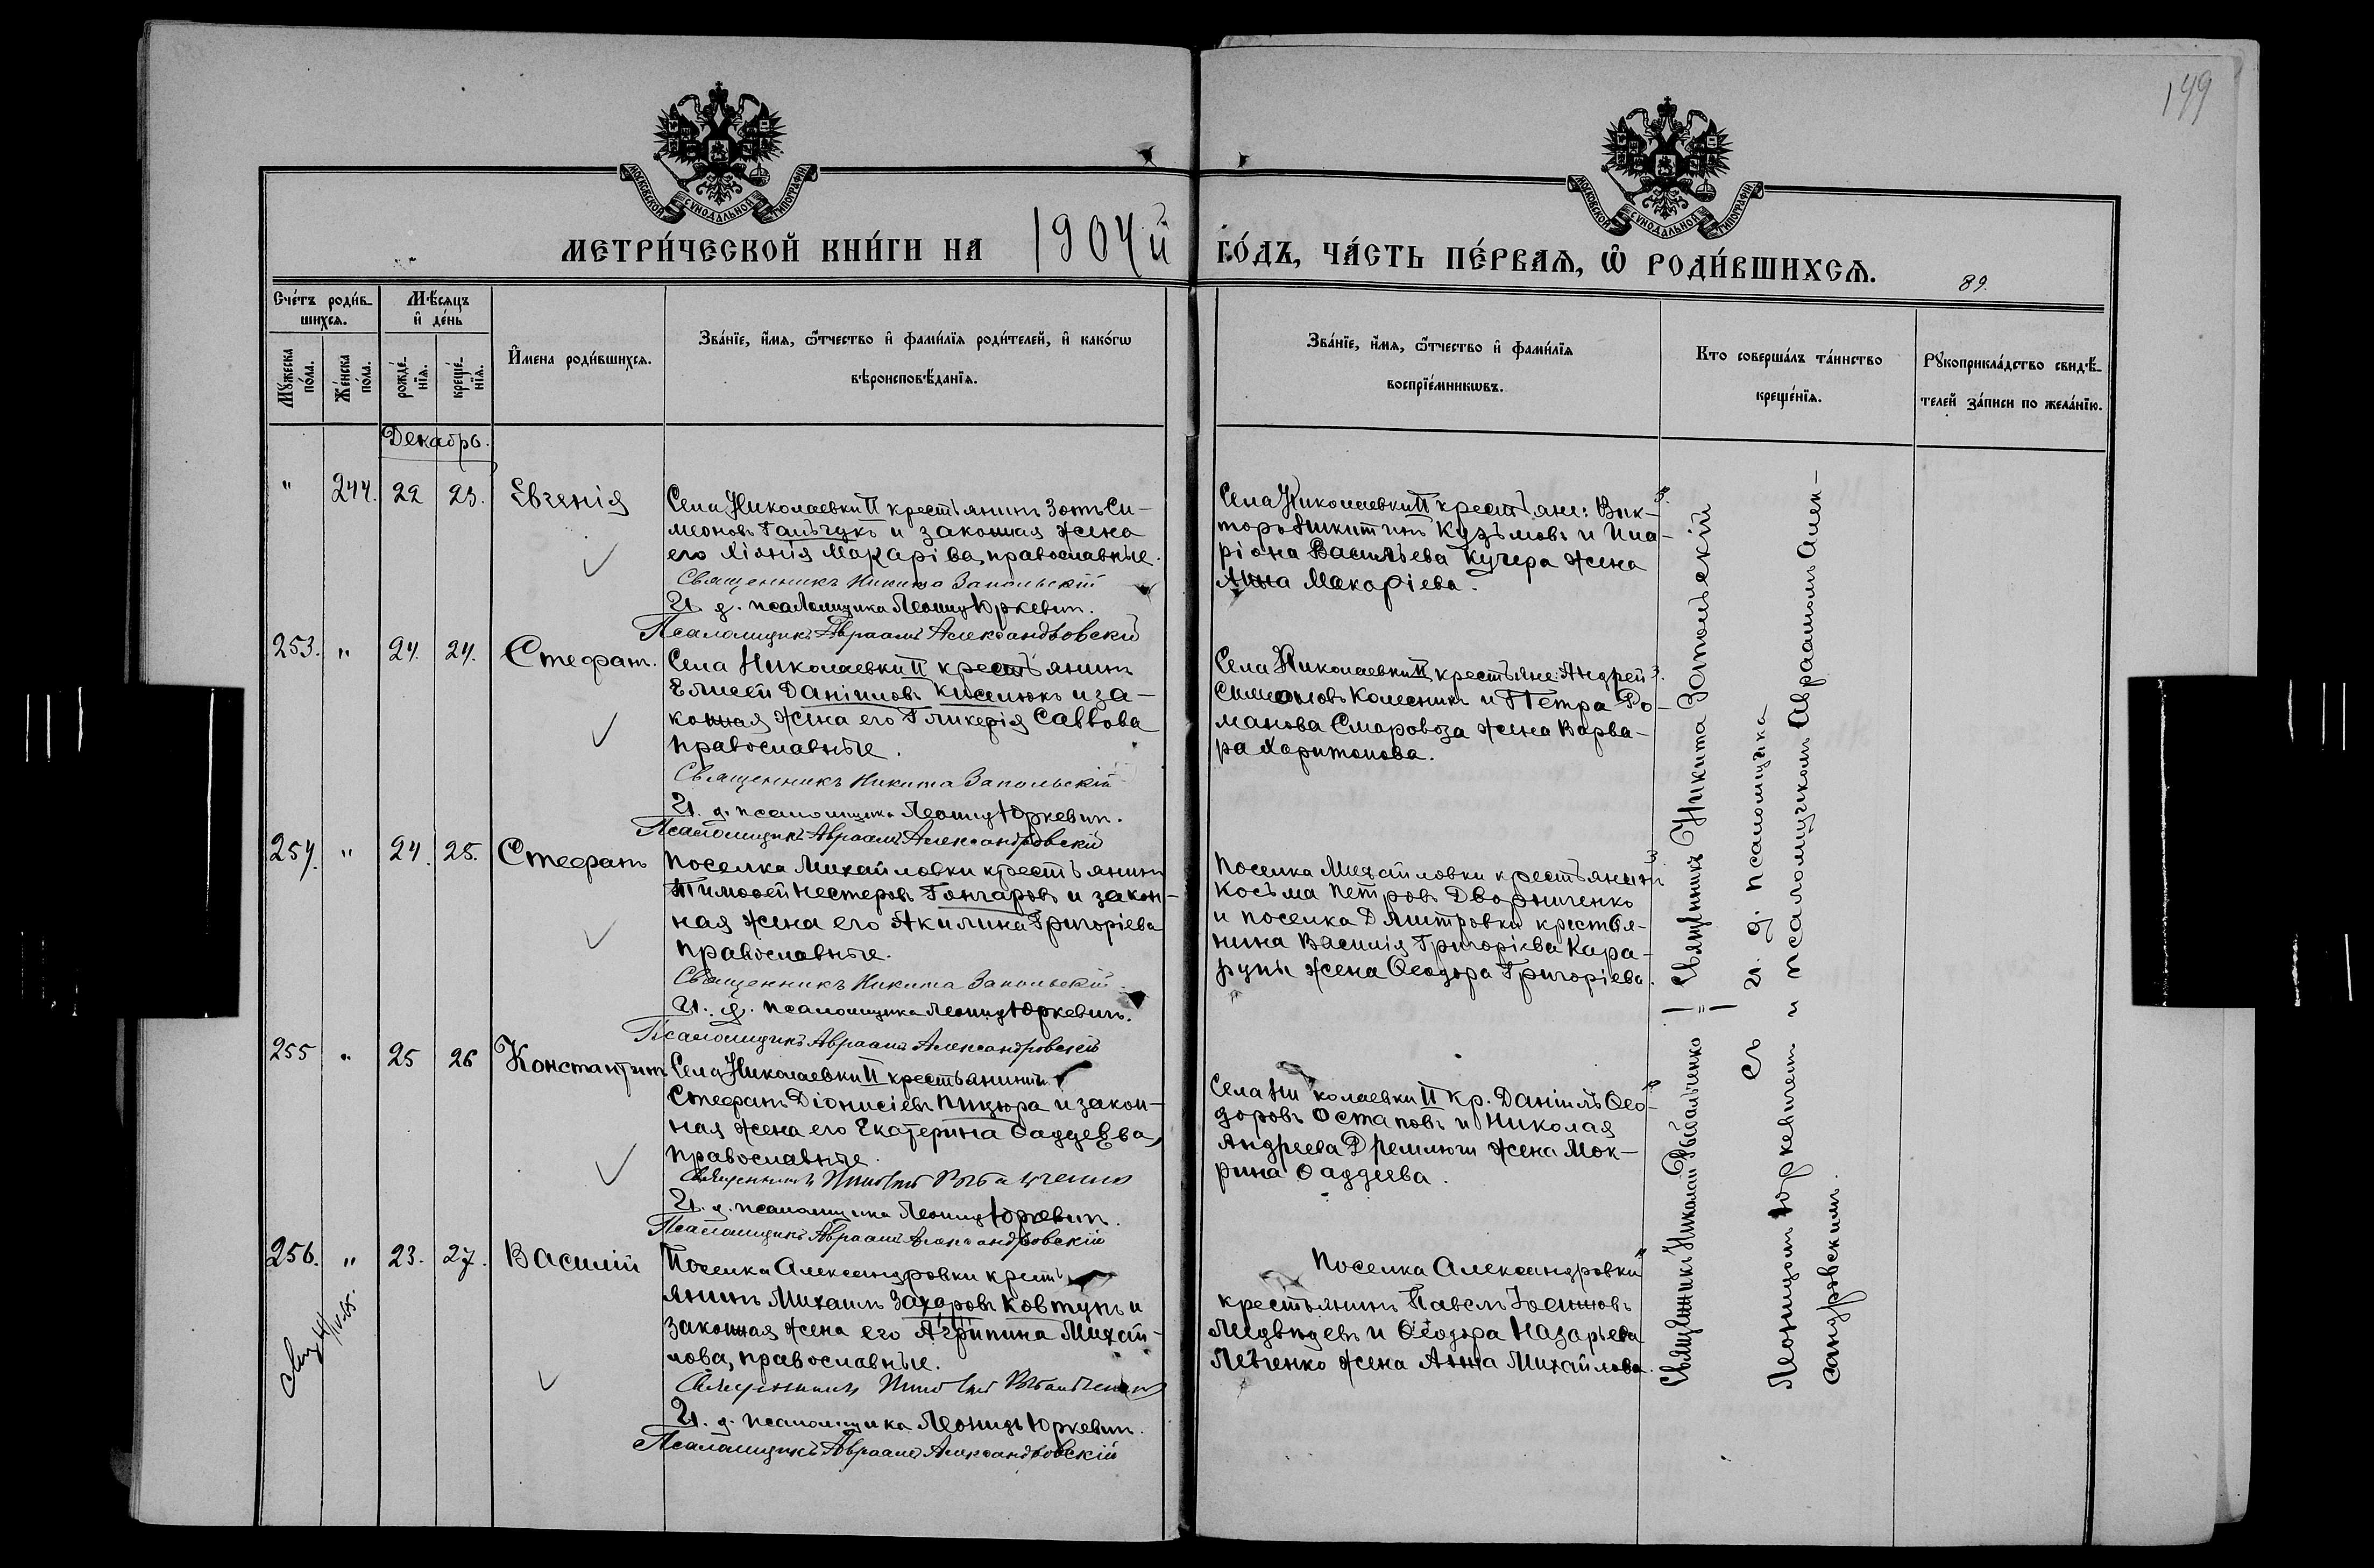 149
МОСКОВСКОЙ СѴНОДАЛЬНОЙ ТИПОГРАФІИ
МОСКОВСКОЙ СѴНОДАЛЬНОЙ ТИПОГРАФІИ
МЕТРИ́ЧЕСКОЙ КНИ́ГИ НА 1904й ГО́ДЪ, ЧА́СТЬ ПЕ́РВАѦ, Ѡ҆ РОДИ́ВШИХСѦ.
89.
Сче́тъ роди́в-
шихсѧ.
Мѣ́сѧцъ
и҆ де́нь
Мꙋ́жеска
по́ла.
Же́нска
по́ла.
рожде́-
нїѧ.
креще́-
нїѧ.
И҆мена роди́вшихсѧ.
Зва́нїе, и҆́мѧ, ѻ҆́тчество и҆ фами́лїѧ роди́телей, и҆ како́гѡ
вѣроисповѣ́данїѧ.
Зва́нїе, и҆́мѧ, ѻ҆́тчество и҆ фами́лїѧ
воспрїе́мникѡвъ.
Кто соверша́лъ та́инство
креще́нїѧ.
Рꙋкоприкла́дство свидѣ́-
телей за́писи по жела́нїю.
Декабрь.
" 244. 22 23. Евгенія
Села Николаевки II крестьянинъ Зотъ Си-
меоновъ Гальчукъ и законная жена
его Хіонія Макаріева, православные.
Священникъ Никита Запольскій
И. д. псаломщика Леонидъ Юркевич.
Псаломщикъ Авраамъ Александровскій
Села Николаевки II крестьяне: Вик-
торъ Никитинъ Кузьмовъ и Ила-
ріона Васильева Кучера жена
Анна Макаріева.
253. " 24. 24. Стефанъ.
Села Николаевки II крестьянинъ
Елисей Даніиловъ Киселюкъ и за-
конная жена его Гликерія Саввова
православные.
Священникъ Никита Запольскій
И. д. псаломщика Леонидъ Юркевич.
Псаломщикъ Авраамъ Александровскій
Села Николаевки II крестьяне: Андрей
Симеоновъ Колесникъ и Петра Ро-
манова Старовоза жена Варва-
ра Харитонова.
254. " 24. 25. Стефанъ
Поселка Михайловки крестьянинъ
Тимоѳей Нестеровъ Гончаровъ и закон-
ная жена его Акилина Григоріева
православные.
Священникъ Никита Запольскій
И. д. псаломщика Леонидъ Юркевичъ.
Псаломщикъ Авраамъ Александровскій
Поселка Михайловки крестьянинъ
Косьма Петровъ Дворниченко
и поселка Дмитровки крестья-
нина Василія Григоріева Кара-
рупы жена Ѳеодора Григоріева.
255 " 25 26 Константинъ
Села Николаевки II крестьянинъ
Стефанъ Діонисіевъ Пицюра и закон-
ная жена его Екатерина Ѳаддеева,
православные.
Священникъ Николай Рыбальченко
И. д. псаломщика Леонидъ Юркевич.
Псаломщикъ Авраамъ Александровскій
Села Николаевки II кр. Даніилъ Ѳео-
доровъ Остаповъ и Николая
Андреева Дремлюги жена Мок-
рина Ѳаддеева.
256. " 23. 27. Василій
Поселка Александровки кресть
янинъ Михаилъ Захаровъ Ковтунъ и
законная жена его Агрипина Михай-
лова, православные.
Священникъ Николай Рыбальченко
И. д. псаломщика Леонидъ Юркевич.
Псаломщикъ Авраамъ Александровскій
Поселка Александровки
крестьянинъ Павелъ Іоанновъ
Медвѣдевъ и Ѳеодора Назарьева
Левченко жена Анна Михайлова.
Священникъ Никита Запольскій
Священникъ Николай Рыбальченко
съ и. д. псаломщика
Леонидомъ Юркевичемъ и псаломщикомъ Авраамомъ Алек-
сандровскимъ.